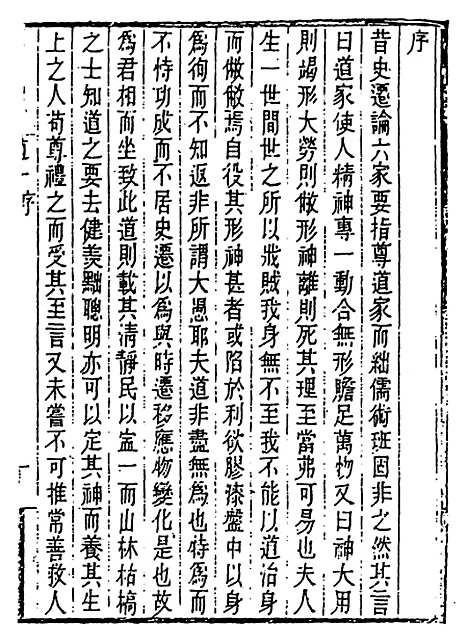 序
昔史遷論六家要指尊道家而絀儒術班固非之然其言
曰道家使人精神專一動合無形贍足萬物又曰神大用
則竭形大勞則敝形神離則死其理至當弗可易也夫人
生一世間世之所以戕賊我身無不至我不能以道治身
而倣倣焉自役其形神甚者或陷於利欲膠漆盤中以身
爲徇而不知返非所謂大愚耶夫道非盡無爲也特爲而
不恃功成而不居史遷以爲與時遷移應物變化是也故
爲君相而坐致此道則載其清靜民以寍一而山林枯槁
之士知道之要去健羡黜聰明亦可以定其神而養其生
上之人苟尊禮之而受其至言又未嘗不可推常善救人
道一序